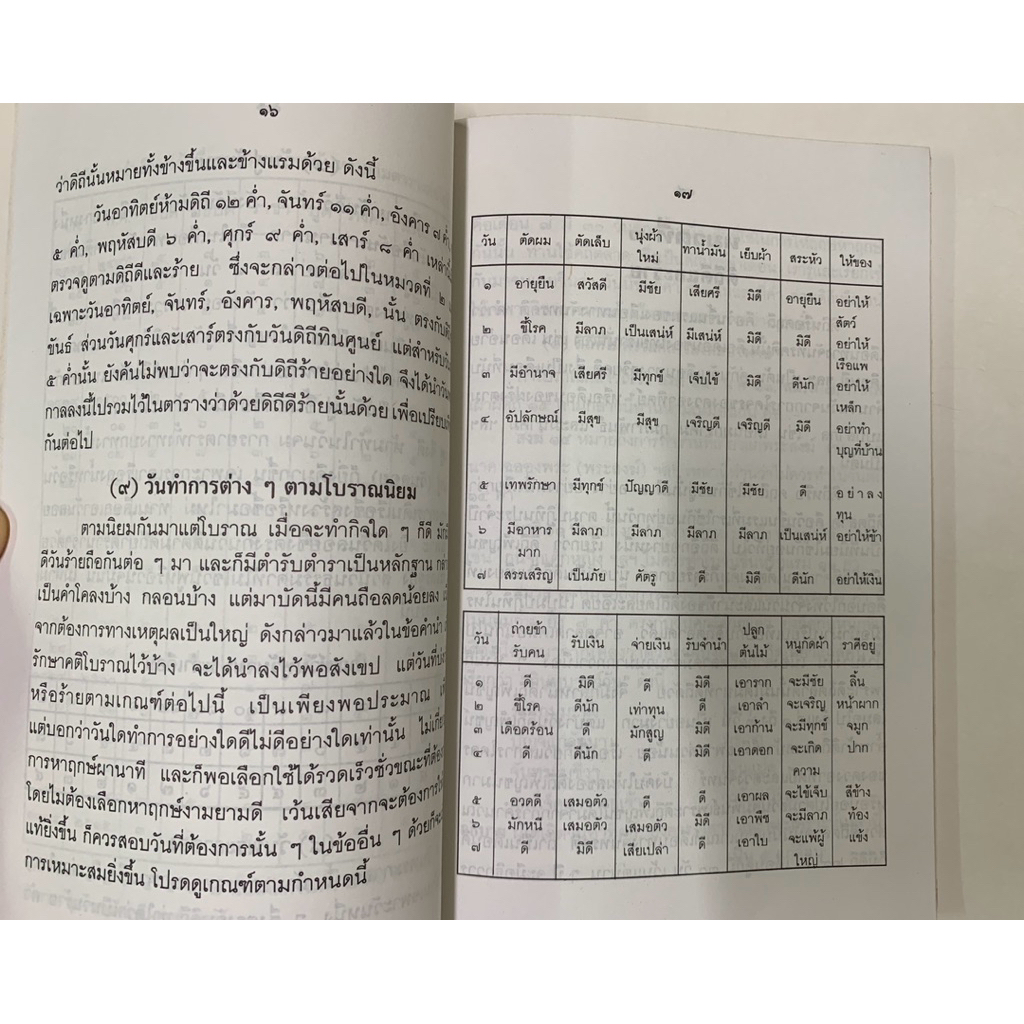 ๑๖
ว่าดิถีนั้นหมายทั้งข้างขึ้นและข้างแรมด้วย ดังนี้
วันอาทิตย์ห้ามดิถี ๑๒ ค่ำ, จันทร์ ๑๑ ค่ำ, อังคาร ๗ ค่ำ,
๕ ค่ำ, พฤหัสบดี ๖ ค่ำ, ศุกร์ ๙ ค่ำ, เสาร์ ๘ ค่ำ
ตรวจดูตามดิถีดีและร้าย ซึ่งจะกล่าวต่อไปในหมวดที่ ๒
เฉพาะวันอาทิตย์, จันทร์, อังคาร, พฤหัสบดี, นั้น ตรงกับ
ขันธ์ ส่วนวันศุกร์และเสาร์ตรงกับวันดิถีทินศูนย์ แต่สำหรับ
๕ ค่ำนั้น ยังค้นไม่พบว่าจะตรงกับดิถีร้ายอย่างใด จึงได้นำ
กาลลงนี้ไปรวมไว้ในตารางว่าด้วยดิถีดีร้ายนั้นด้วย เพื่อ
กันต่อไป
(๙) วันทำการต่าง ๆ ตามโบราณนิยม
ตามนิยมกันมาแต่โบราณ เมื่อจะทำกิจใด ๆ ก็ดี
ดีวันร้ายถือกันต่อ ๆ มา และก็มีตำรับตำราเป็นหลักฐาน
เป็นคำโคลงบ้าง กลอนบ้าง แต่มาบัดนี้มีคนถือลดน้อยลง
จากต้องการทางเหตุผลเป็นใหญ่ ดังกล่าวมาแล้วในข้อคำนำ
รักษาคติโบราณไว้บ้าง จะได้นำลงไว้พอสังเขป แต่วันที่
หรือร้ายตามเกณฑ์ต่อไปนี้ เป็นเพียงพอประมาณ
แต่บอกว่าวันใดทำการอย่างใดดีไม่ดีอย่างใดเท่านั้น
การหาฤกษ์ผานาที และก็พอเลือกใช้ได้รวดเร็วชั่วขณะที่ต้อง
โดยไม่ต้องเลือกหาฤกษ์งามยามดี เว้นเสียจากจะต้องการ
แท้ยิ่งขึ้น ก็ควรสอบวันที่ต้องการนั้น ๆ ในข้ออื่น ๆ ด้วย
การเหมาะสมยิ่งขึ้น โปรดดูเกณฑ์ตามกำหนดนี้
๑๗
วัน ตัดผม ตัดเล็บ นุ่งผ้าใหม่ ทาน้ำมัน เย็บผ้า สระหัว ให้ของ
๑ อายุยืน สวัสดี มีชัย เสียศรี มิดี อายุยืน อย่าให้สัตว์
๒ ขี้โรค มีลาภ เป็นเสน่ห์ มีเสน่ห์ มิดี มิดี อย่าให้เรือแพ
๓ มีอำนาจ เสียศรี มีทุกข์ เจ็บไข้ มิดี ดีนัก อย่าให้เหล็ก
๔ อัปลักษณ์ มีสุข มีสุข เจริญดี เจริญดี มิดี อย่าทำบุญที่บ้าน
๕ เทพรักษา มีทุกข์ ปัญญาดี มีชัย มีชัย ดี อย่าลงทุน
๖ มีอาหารมาก มีลาภ มีลาภ มีลาภ มีลาภ เป็นเสน่ห์ อย่าให้ข้า
๗ สรรเสริญ เป็นภัย ศัตรู ดี มิดี ดีนัก อย่าให้เงิน
วัน ถ่ายข้ารับคน รับเงิน จ่ายเงิน รับจำนำ ปลูกต้นไม้ หนูกัดผ้า ราศีอยู่
๑ ดี มิดี ดี มิดี เอาราก จะมีชัย ลิ้น
๒ ขี้โรค ดีนัก เท่าทุน ดี เอาลำ จะเจริญ หน้าผาก
๓ เดือดร้อน ดี มักสูญ มิดี เอาก้าน จะมีทุกข์ จมูก
๔ ดี ดีนัก ดี มิดี เอาดอก จะเกิดความ ปาก
๕ อวดดี เสมอตัว ดี ดี เอาผล จะไข้เจ็บ สีข้าง
๖ มักหนี เสมอตัว เสมอตัว มิดี เอาพืช จะมีลาภ ท้อง
๗ ดี มิดี เสียเปล่า ดี เอาใบ จะแพ้ผู้ใหญ่ แข้ง